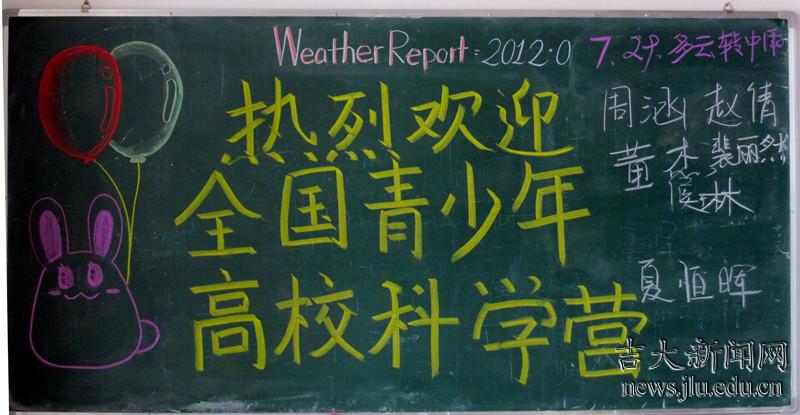 Weather Report: 2012.0 7.29. 多云转中雨
热烈欢迎
全国青少年
高校科学营
周涵 赵倩
董杰 裴丽然
夏恒晖
吉大新闻网
news.jlu.edu.cn